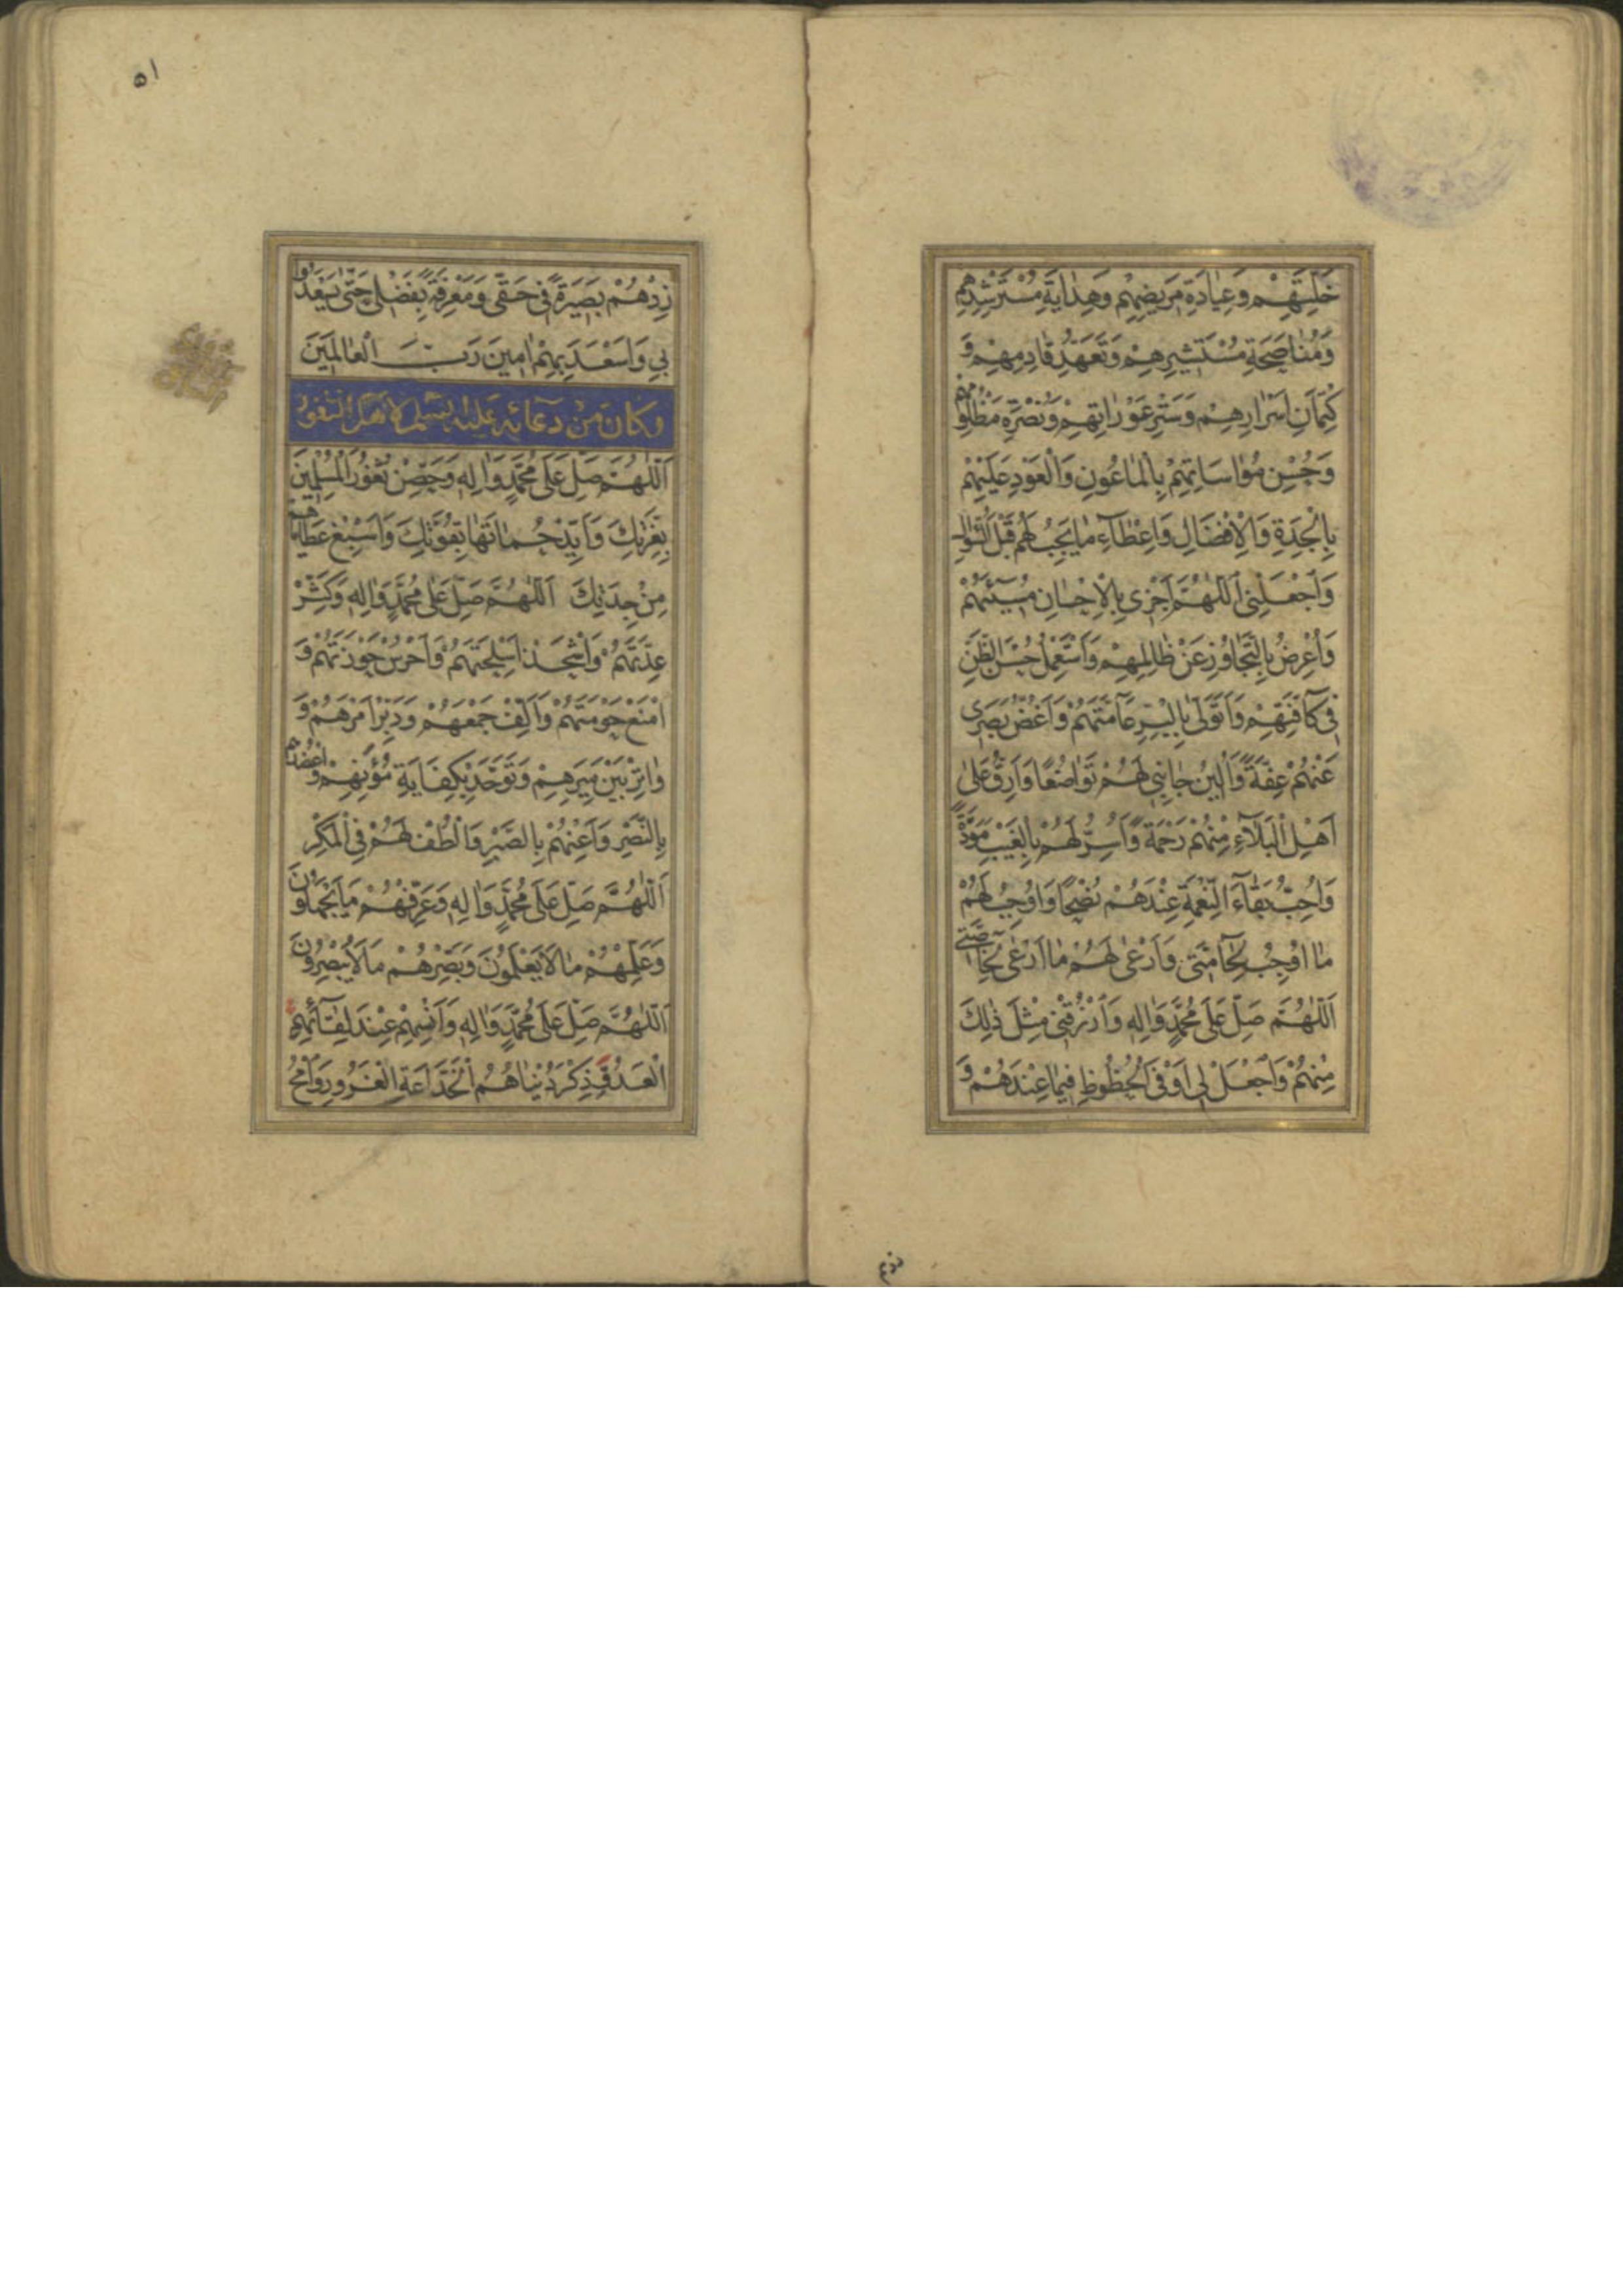 خَلَّتِهِمْ وَعِيَادَةِ مَرِيضِهِمْ وَهِدَايَةِ مُسْتَرْشِدِهِمْ
وَمُنَاصَحَةِ مُسْتَشِيرِهِمْ وَتَعَهُّدِ قَادِمِهِمْ وَ
كِتْمَانِ اَسْرَارِهِمْ وَسَتْرِ عَوْرَاتِهِمْ وَنُصْرَةِ مَظْلُومِهِمْ
وَحُسْنِ مُوَاسَاتِهِمْ بِالْمَاعُونِ وَالْعَوْدِ عَلَيْهِمْ
بِالْجِدَةِ وَالْاِفْضَالِ وَاِعْطَآءِ مَا يَجِبُ لَهُمْ قَبْلَ السُّؤَالِ
وَاجْعَلْنِي اَللّٰهُمَّ اَجْزِي بِالْاِحْسَانِ مُسِيٓئَهُمْ
وَاُعْرِضُ بِالتَّجَاوُزِ عَنْ ظَالِمِهِمْ وَاَسْتَعْمِلُ حُسْنَ الظَّنِّ
فِي كَآفَّتِهِمْ وَاَتَوَلّٰى بِالْبِرِّ عَآمَّتَهُمْ وَاَغُضُّ بَصَرِي
عَنْهُمْ عِفَّةً وَاُلِينُ جَانِبِي لَهُمْ تَوَاضُعًا وَاَرِقُّ عَلٰى
اَهْلِ الْبَلَآءِ مِنْهُمْ رَحْمَةً وَاُسِرُّ لَهُمْ بِالْغَيْبِ مَوَدَّةً
وَاُحِبُّ بَقَآءَ النِّعْمَةِ عِنْدَهُمْ نُصْحًا وَاُوجِبُ لَهُمْ
مَا اُوجِبُ لِحَآمَّتِي وَاَرْعٰى لَهُمْ مَا اَرْعٰى لِخَآصَّتِي
اَللّٰهُمَّ صَلِّ عَلٰى مُحَمَّدٍ وَاٰلِهِ وَارْزُقْنِي مِثْلَ ذٰلِكَ
مِنْهُمْ وَاجْعَلْ لِي اَوْفَى الْحُظُوظِ فِيمَا عِنْدَهُمْ وَ
زدهم
٥١
زِدْهُمْ بَصِيرَةً فِي حَقِّي وَمَعْرِفَةً بِفَضْلِي حَتّٰى يَسْعَدُوا
بِي وَاَسْعَدَ بِهِمْ اٰمِينَ رَبَّ الْعَالَمِينَ
وَكَانَ مِنْ دُعَآئِهِ عَلَيْهِ السَّلَم لِاَهْلِ الثُّغُورِ
اَللّٰهُمَّ صَلِّ عَلٰى مُحَمَّدٍ وَاٰلِهِ وَحَصِّنْ ثُغُورَ الْمُسْلِمِينَ
بِعِزَّتِكَ وَاَيِّدْ حُمَاتَهَا بِقُوَّتِكَ وَاَسْبِغْ عَطَايَاهُمْ
مِنْ جِدَتِكَ اَللّٰهُمَّ صَلِّ عَلٰى مُحَمَّدٍ وَاٰلِهِ وَكَثِّرْ
عِدَّتَهُمْ وَاشْحَذْ اَسْلِحَتَهُمْ وَاحْرُسْ حَوْزَتَهُمْ وَ
امْنَعْ حَوْمَتَهُمْ وَاَلِّفْ جَمْعَهُمْ وَدَبِّرْ اَمْرَهُمْ وَ
وَاتِرْ بَيْنَ مِيَرِهِمْ وَتَوَحَّدْ بِكِفَايَةِ مُؤَنِهِمْ وَاعْضُدْهُمْ
بِالنَّصْرِ وَاَعِنْهُمْ بِالصَّبْرِ وَالْطُفْ لَهُمْ فِي الْمَكْرِ
اَللّٰهُمَّ صَلِّ عَلٰى مُحَمَّدٍ وَاٰلِهِ وَعَرِّفْهُمْ مَا يَجْهَلُونَ
وَعَلِّمْهُمْ مَا لَا يَعْلَمُونَ وَبَصِّرْهُمْ مَا لَا يُبْصِرُونَ
اَللّٰهُمَّ صَلِّ عَلٰى مُحَمَّدٍ وَاٰلِهِ وَاَنْسِهِمْ عِنْدَ لِقَآئِهِمُ
الْعَدُوَّ ذِكْرَ دُنْيَاهُمُ الْخَدَّاعَةِ الْغَرُورِ وَامْحُ